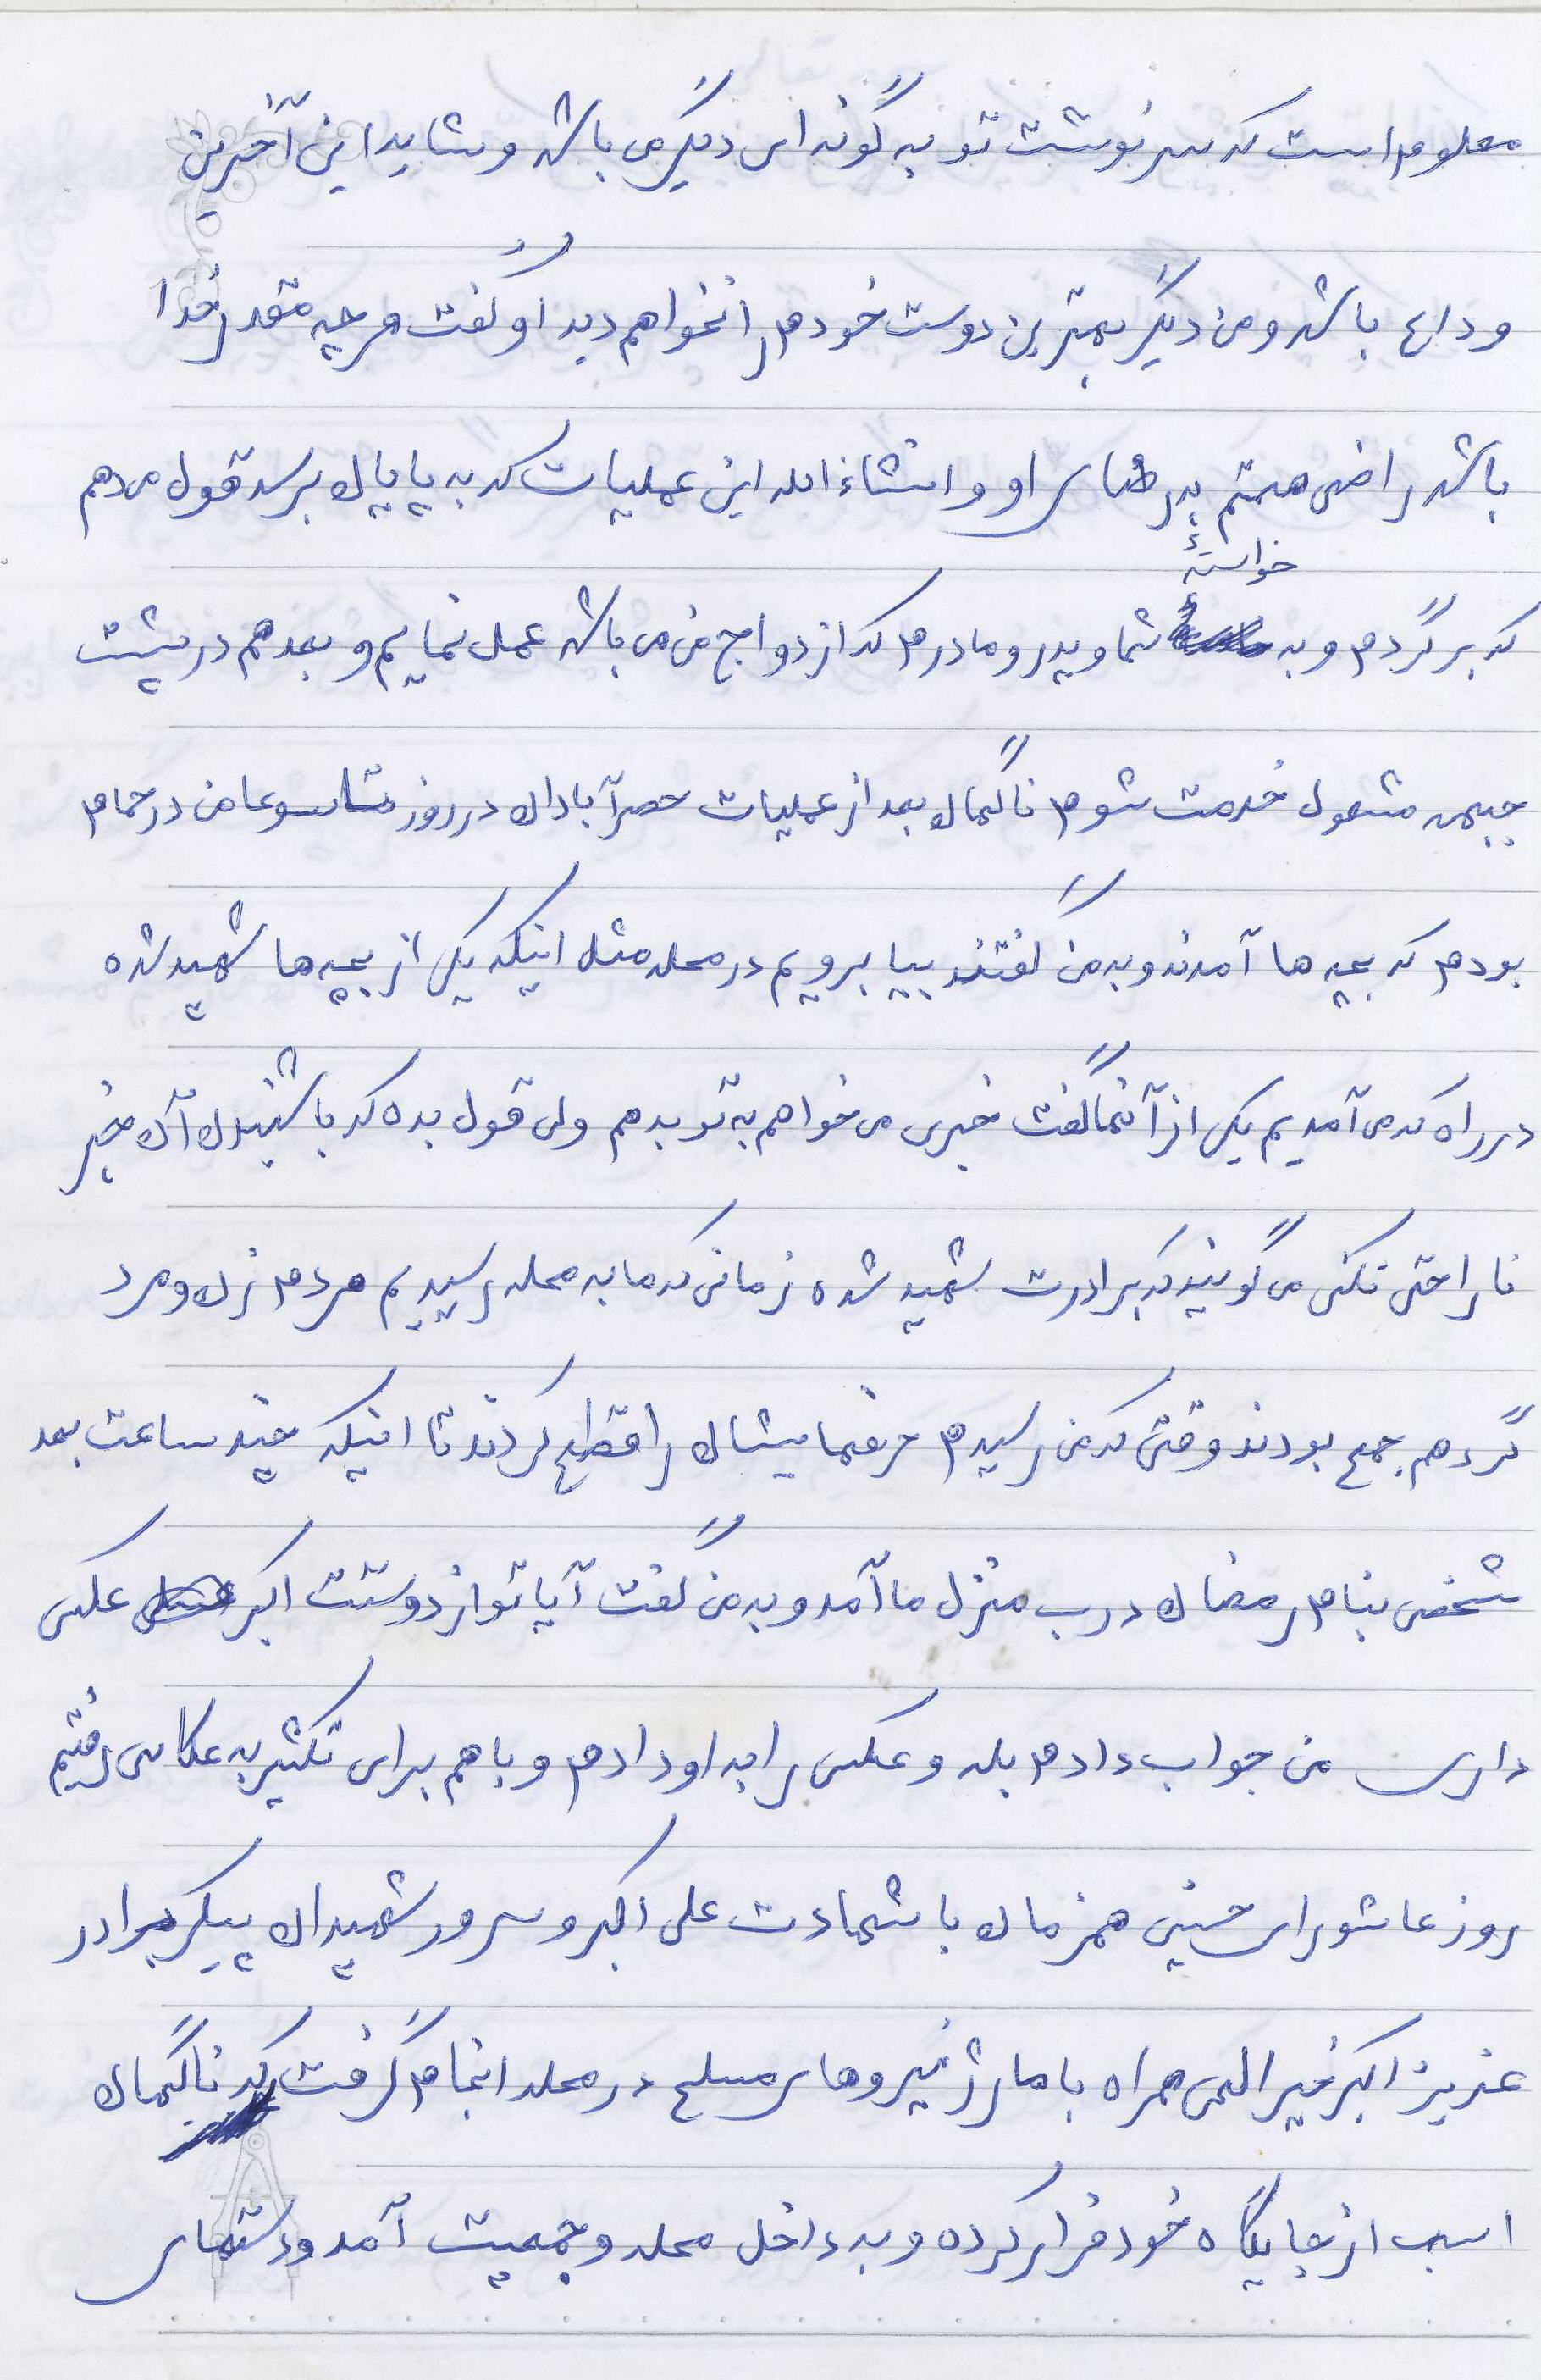 معلوم است که سرنوشت تو به گونه ای دیگر می باشد و شاید این آخرین
وداع باشد و من دیگر بهترین دوست خودم را نخواهم دید او گفت هر چه مقدر خدا
باشد راضی هستم به رضای او و انشاءالله این عملیات که به پایان برسد قول می دهم
خواستهٔ
که برگردم و به شما و پدر و مادرم که ازدواج من می باشد عمل نمایم و بعد هم در پشت
جبهه مشغول خدمت شوم ناگهان بعد از عملیات حصرآبادان در روز تاسوعا من در حمام
بودم که بچه ها آمدند و به من گفتند بیا برویم در محله مثل اینکه یکی از بچه ها شهید شده
در راه که می آمدیم یکی از آنها گفت خبری می خواهم به تو بدهم ولی قول بده که با شنیدن آن خبر
ناراحتی نکنی می گویند که برادرت شهید شده زمانی که ما به محله رسیدیم مردم زن و مرد
گرد هم جمع بودند وقتی که من رسیدم حرفهایشان را قطع کردند تا اینکه چند ساعت بعد
شخصی بنام رمضان درب منزل ما آمد و به من گفت آیا تو از دوستت اکبر عکس
داری من جواب دادم بله و عکس را به او دادم و با هم برای تکثیر به عکاسی رفتیم
روز عاشورای حسینی همزمان با شهادت علی اکبر و سرور شهیدان پیکر برادر
عزیز اکبر خیرالهی همراه با مارژ نیروهای مسلح در محله انجام گرفت که ناگهان
اسب از جایگاه خود فرار کرده و به داخل محله و جمعیت آمد و دستهای